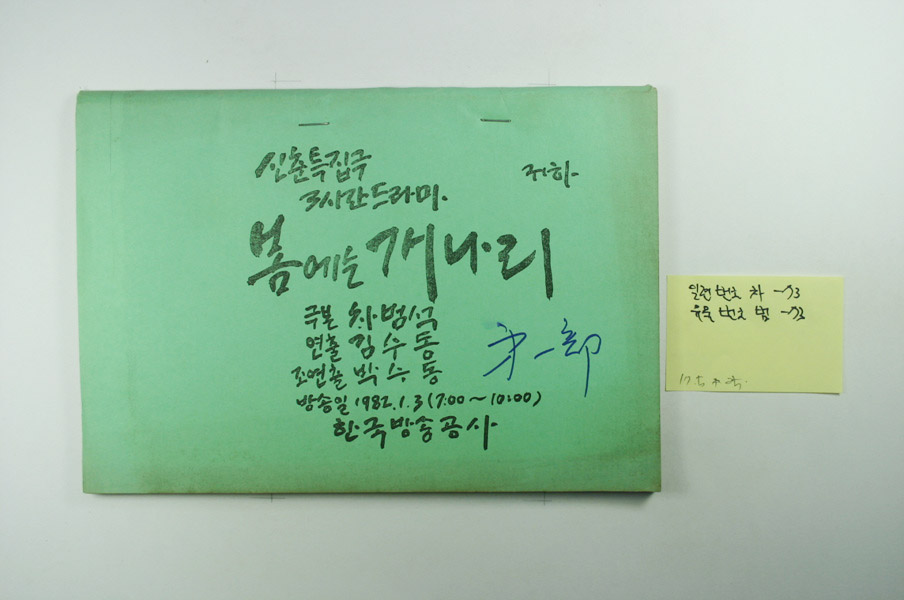 신춘특집극
귀하
3시간드라마.
봄에는 개나리
극본 차범석
연출 김수동
조연출 박수동
第一部
방송일 1982.1.3 (7:00~10:00)
한국방송공사
일련번호 차 -93
유무 번호 범 -93